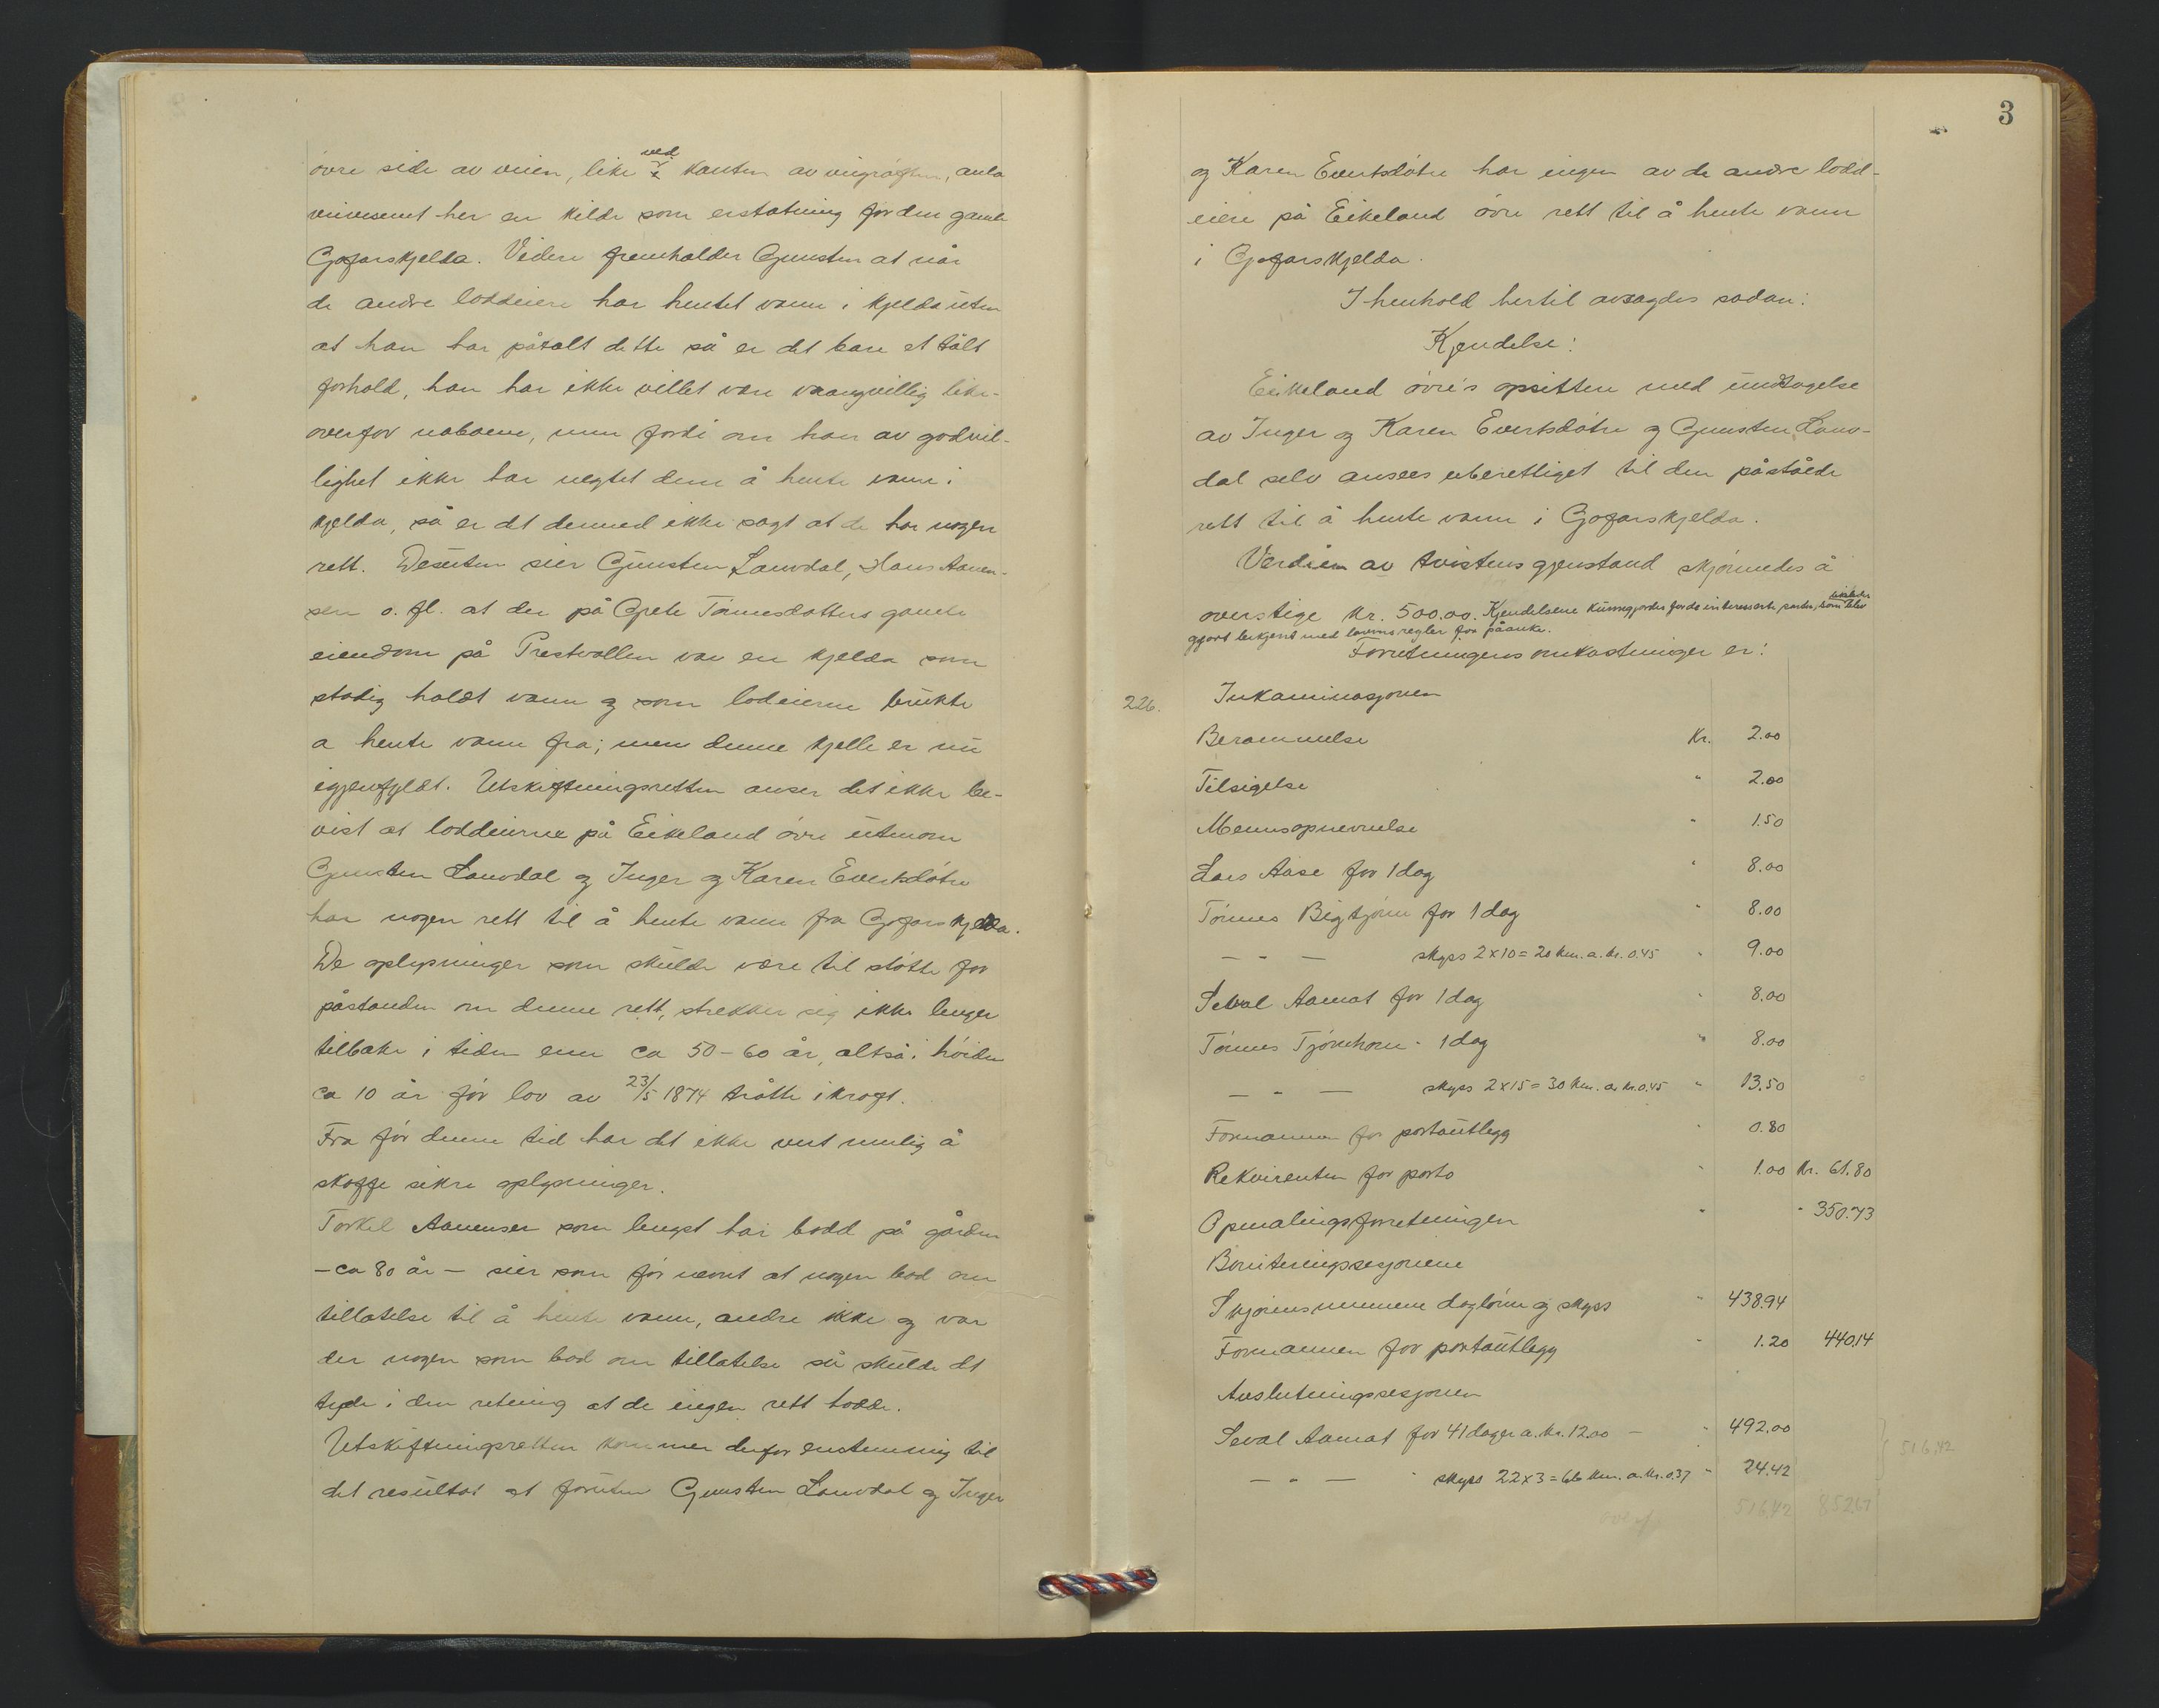 øvre side av veien, like ved kanten av veigrøften, anla
veivesenet her en kilde som erstatning for den gamle
Gofarskjelda. Videre fremholder Gunsten at når
de andre loddeiere har hentet vann i kjelda uten
at han har påtalt dette så er det bare et tålt
forhold, han har ikke villet være vrangvillig like-
overfor naboene, men fordi om han av godvil-
lighet ikke har negtet dem å hente vann i
kjelda, så er det dermed ikke sagt at de har nogen
rett. Desuten sier Gunsten Lauvdal, Hans Aanen-
sen o. fl. at der på Grete Tönnesdatters gamle
eiendom på Prestvollen var en kjelda som
stadig holdt vann og som lodeierne brukte
a hente vann fra; men denne kjelle er nu
igjenfyldt. Utskiftningsretten anser det ikke be-
vist at loddeierne på Eikeland övre utenom
Gunsten Lauvdal og Inger og Karen Evertsdötre
har nogen rett til å hente vann fra Gofarskjelda.
De oplysninger som skulde være til stötte for
påstanden om denne rett, strekker sig ikke lenger
tilbake i tiden enn ca 50-60 år, altså i höiden
ca 10 år för lov av 23/5 1874 trådte i kraft.
Fra för denne tid har det ikke vert mulig å
skaffe sikre oplysninger.
Torkel Aanensen som lengst har bodd på gården
- ca 80 år - sier som för nevnt at nogen bad om
tillatelse til å hente vann, andre ikke og var
der nogen som bad om tillatelse så skulde det
tyde i den retning at de ingen rett hadde.
Utskiftningsretten kommer derfor enstemmig til
det resultat at foruten Gunsten Lauvdal og Inger
3
og Karen Evertsdötre har ingen av de andre lodd-
eiere på Eikeland övre rett til å hente vann
i Gofarskjelda.
I henhold hertil avsagdes sådan:
Kjendelse:
Eikeland övre's opsittere med undtagelse
av Inger og Karen Evertsdötre og Gunsten Lauv-
dal selv ansees uberettiget til den påståede
rett til å hente vann i Gofarskjelda.
Verdien av tvistens gjenstand skjönnedes å
overstige kr. 500.00. Kjendelsene kunngjordes for de interesserte parter, som blev
gjort bekjent med lovens regler for påanke.
Forretningens omkostninger er:
226. Inkaminasjonen
Berammelse Kr. 2.00
Tilsigelse " 2.00
Mennsopnevnelse " 1.50
Lars Aase for 1 dag " 8.00
Tönnes Bigtjönn for 1 dag " 8.00
— " — skyss 2x10=20 km. a. kr. 0.45 " 9.00
Seval Aamot for 1 dag " 8.00
Tönnes Tjörnhom " 1 dag " 8.00
— " — skyss 2x15=30 km. a. kr. 0.45 " 13.50
Formannen for portoutlegg " 0.80
Rekvirenten for porto " 1.00 Kr. 61.80
Opmålingsforretningen " " 350.73
Boniteringssesjonene
Skjönsmennene daglönn og skyss " 438.94
Formannen for portoutlegg " 1.20 440.14
Avslutningssesjonen
Seval Aamot for 41 dager a. kr. 12.00 — " 492.00
— " — " skyss 22x3=66 km. a. kr. 0.37 " 24.42
516.42
516.42 852.67